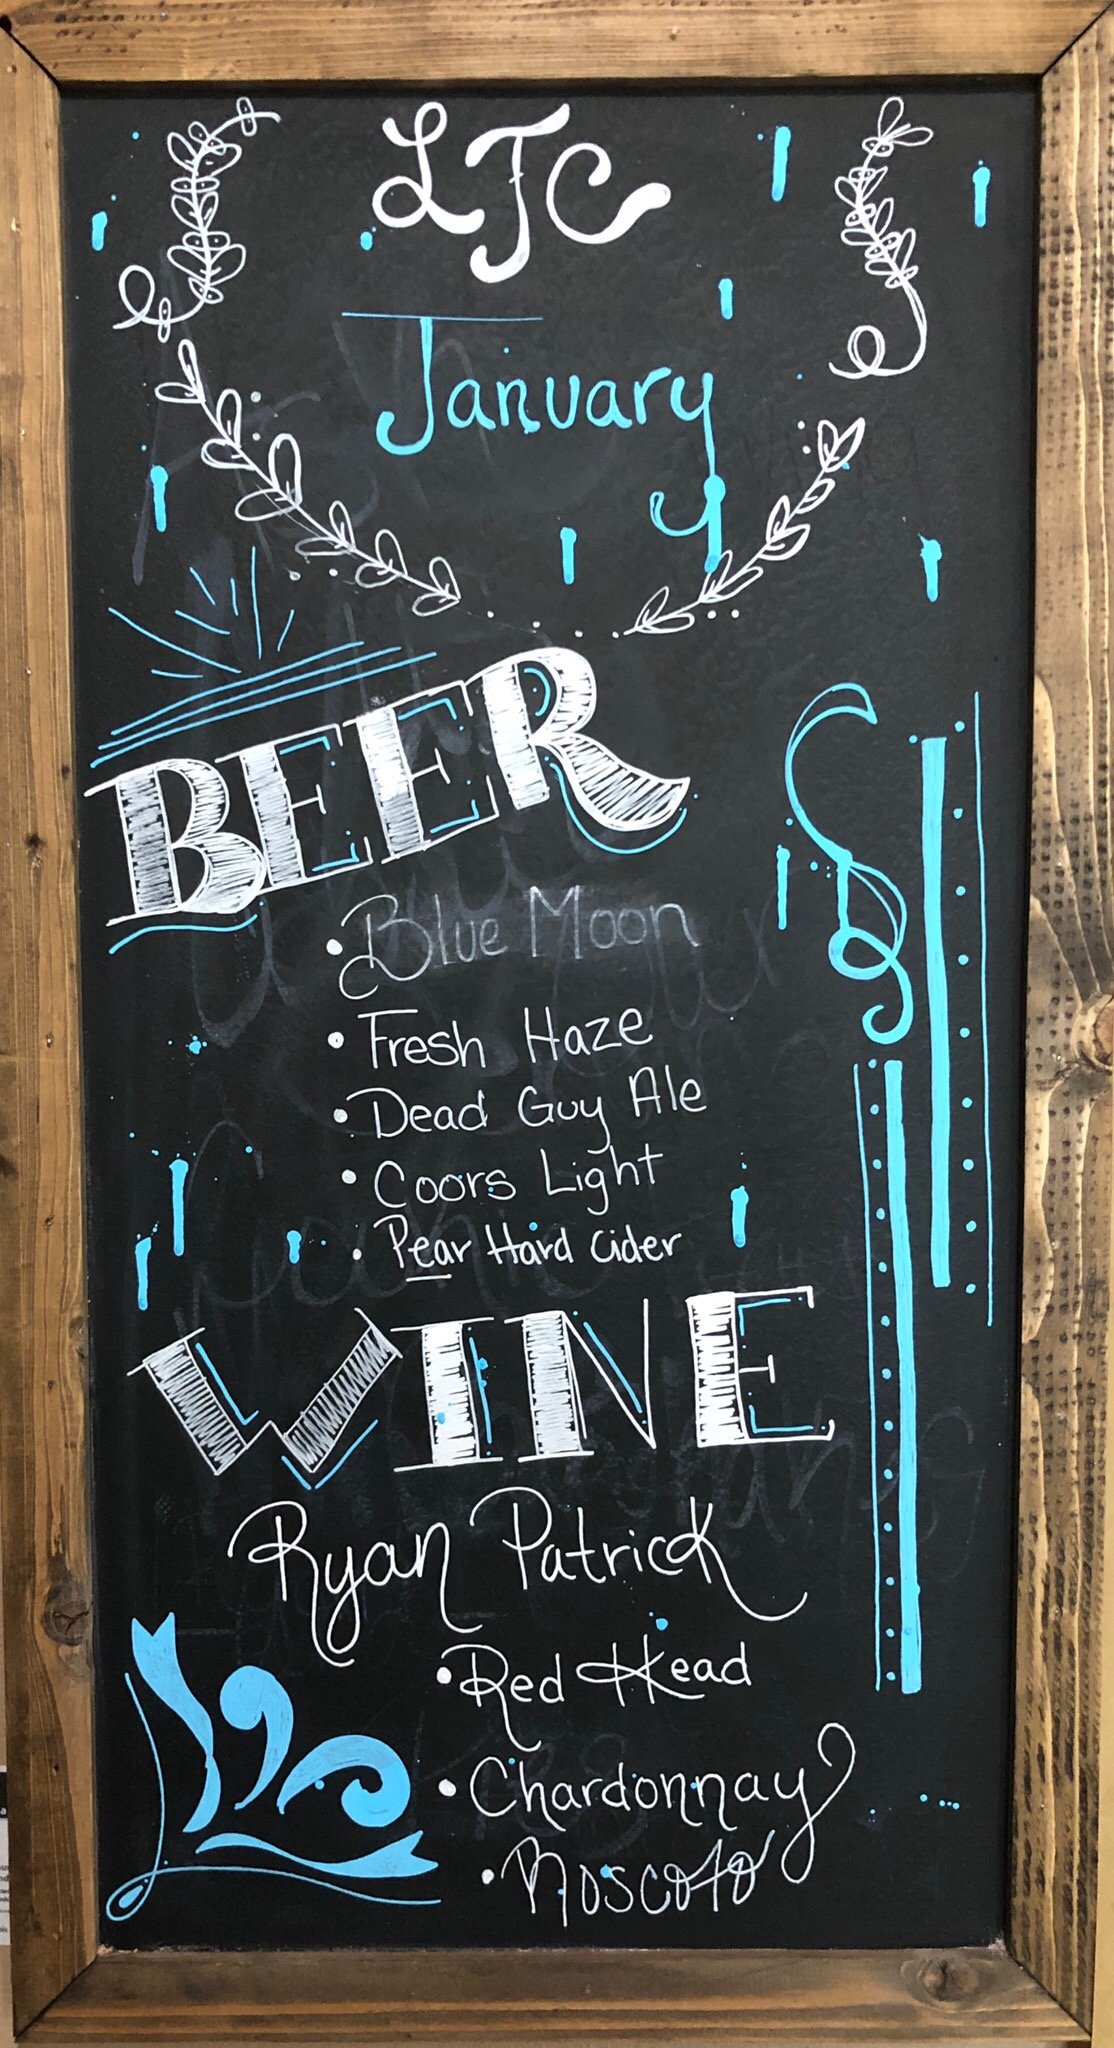 LJC
January
BEER
• Blue Moon
• Fresh Haze
• Dead Guy Ale
• Coors Light
• Pear Hard Cider
WINE
Ryan Patrick
• Red Head
• Chardonnay
• Moscato